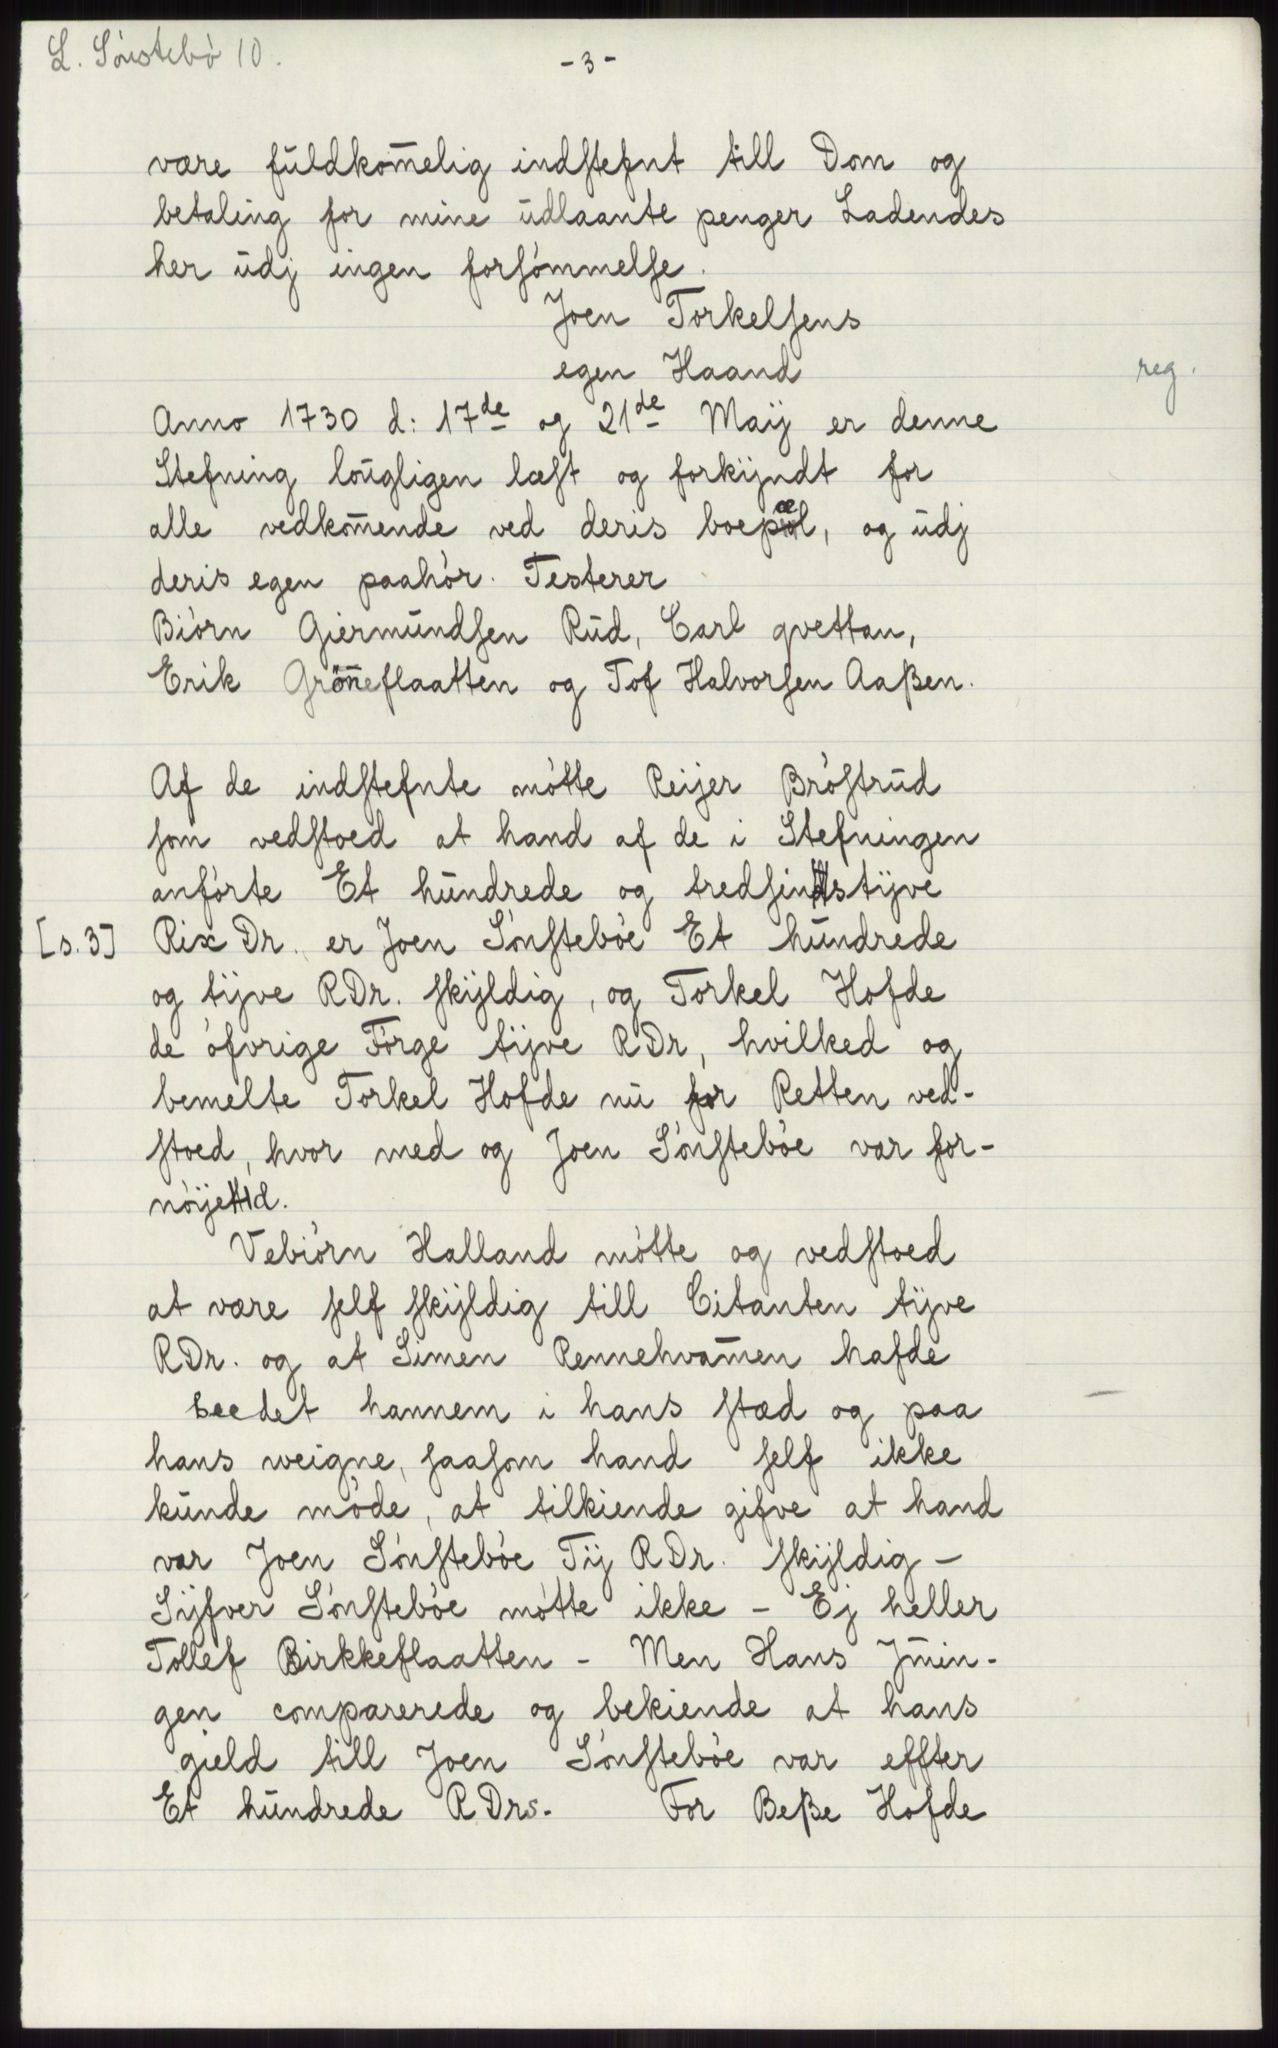 L. Sönstebö 10.
- 3 -
være fuldkom̅elig indstefnt till Dom og
betaling for mine udlaante penger Ladendes
her udj ingen forsömmelse.
Joen Torkelsens
egen Haand
reg.
Anno 1730 d: 17de og 21de Maij er denne
Stefning lougligen læst og forkijndt for
alle vedkom̅ende ved deris boepæl, og udj
deris egen paahör. Testerer
Biörn Giermundsen Rud, Carl qvettan,
Erik Grön̅eflaatten og Tof Halvorsen Aaßen.
Af de indstefnte mötte Reijer Bröstrud
som vedstoed at hand af de i Stefningen
anförte Et hundrede og tredsindstijve
[s. 3] Rix Dr. er Joen Sönsteböe Et hundrede
og tijve RDr. skijldig, og Torkel Hofde
de öfvrige Förge tijve RDr, hvilked og
bemelte Torkel Hofde nu for Retten ved-
stoed, hvor med og Joen Sönsteböe var for-
nöijed.
Vebiörn Halland mötte og vedstoed
at være self skijldig till Citanten tijve
RDr. og at Simen Rennehvam̅en hafde
beedet hannem i hans stæd og paa
hans weigne, saasom hand self ikke
kunde möde, at tilkiende gifve at hand
var Joen Sönsteböe Tij RDr. skijldig -
Sijfver Sönsteböe mötte ikke - Ej heller
Tollef Birkkeflaatten - Men Hans Jm̅in-
gen comparerede og bekiende at hans
gield till Joen Sönsteböe var effter
Et hundrede RDrs. For Beße Hofde